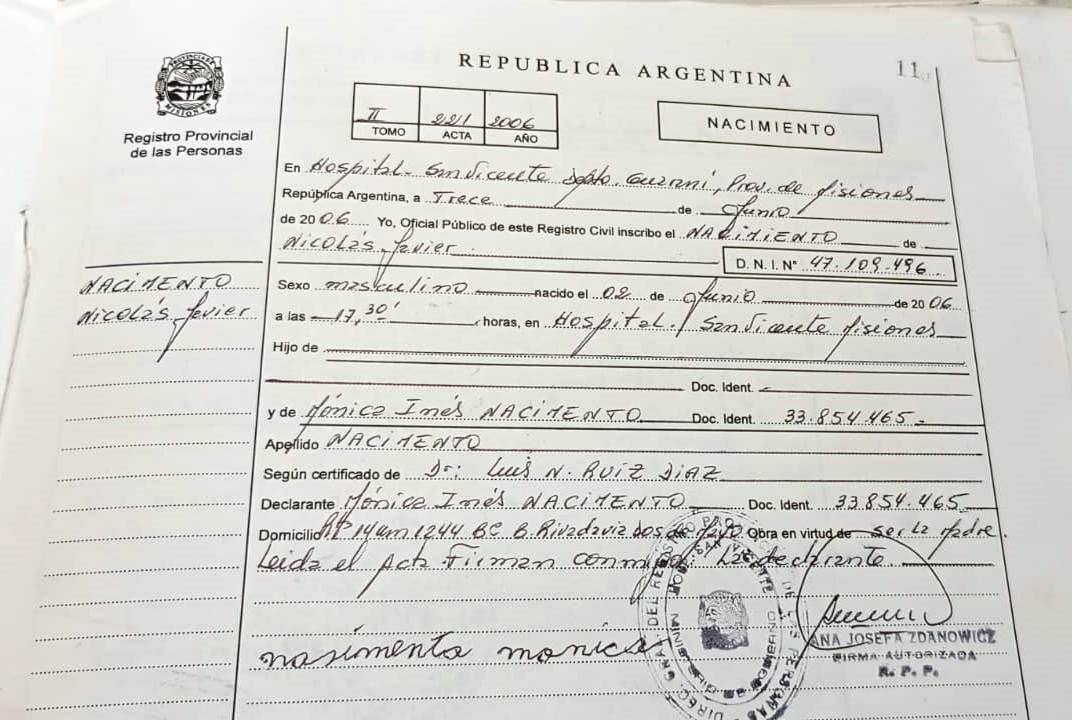 11
REPUBLICA ARGENTINA
PROVINCIA DE MISIONES
Registro Provincial
de las Personas
II 221 2006
TOMO ACTA AÑO
NACIMIENTO
En Hospital. San Vicente Depto. Guaraní, Prov. de Misiones
República Argentina, a Trece de Junio
de 2006 Yo, Oficial Público de este Registro Civil inscribo el NACIMIENTO de
Nicolás Javier
D.N.I. N° 47.109.496
NACIMENTO
Nicolás Javier
Sexo masculino nacido el 02 de Junio de 2006
a las 17,30' horas, en Hospital. San Vicente Misiones
Hijo de
Doc. Ident.
y de Mónica Inés NACIMENTO Doc. Ident. 33.854.465
Apellido NACIMENTO
Según certificado de Dr: Luis N. RUIZ DIAZ
Declarante Mónica Inés NACIMENTO Doc. Ident. 33.854.465
Domicilio RP 14 km 1244 BC B. Rivadavia Dos de Mayo Obra en virtud de ser la Madre
Leida el Acta Firman conmigo La declarante
nasimento monica
ANA JOSEFA ZDANOWICZ
FIRMA AUTORIZADA
R. P. P.